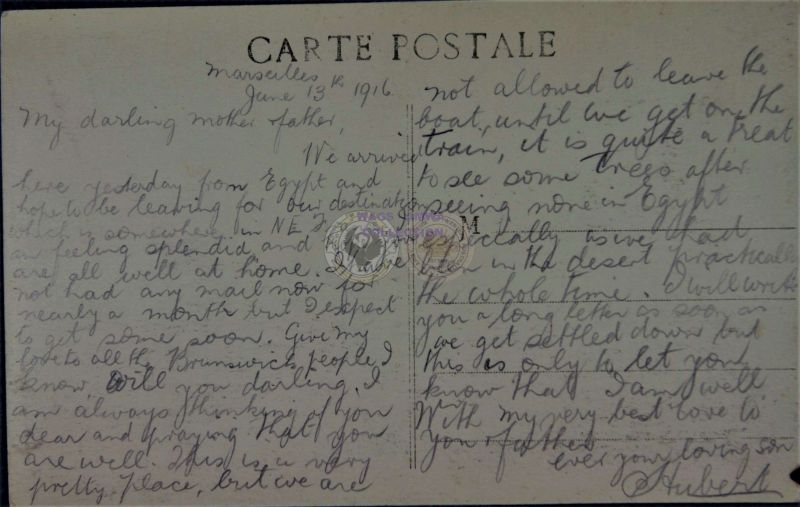 CARTE POSTALE
Marseilles
June 13th 1916
My darling mother & father,
We arrived
here yesterday from Egypt and
hope to be leaving for our destination
which is somewhere in N E
am feeling splendid and
are all well at home. I have
not had any mail now for
nearly a month but I expect
to get some soon. Give my
love to all the Brunswick people, I
know will you darling. I
am always thinking of you
dear and praying that you
are well. This is a very
pretty place, but we are
not allowed to leave the
boat, until we get on the
train, it is quite a treat
to see some trees after
seeing none in Egypt
especially as we had
been in the desert practically
the whole time. I will write
you a long letter as soon as
we get settled down but
this is only to let you
know that I am well
With my very best love to
you & father
ever your loving son
Hubert
WAGS
COLLECTION
M